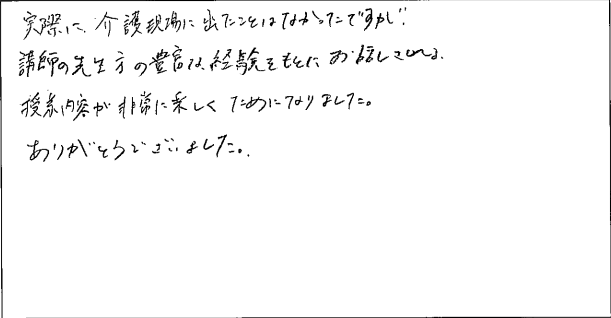 実際に、介護現場に出たことはなかったですが、
講師の先生方の豊富な経験をもとにお話しされる、
授業内容が非常に楽しくためになりました。
ありがとうございました。